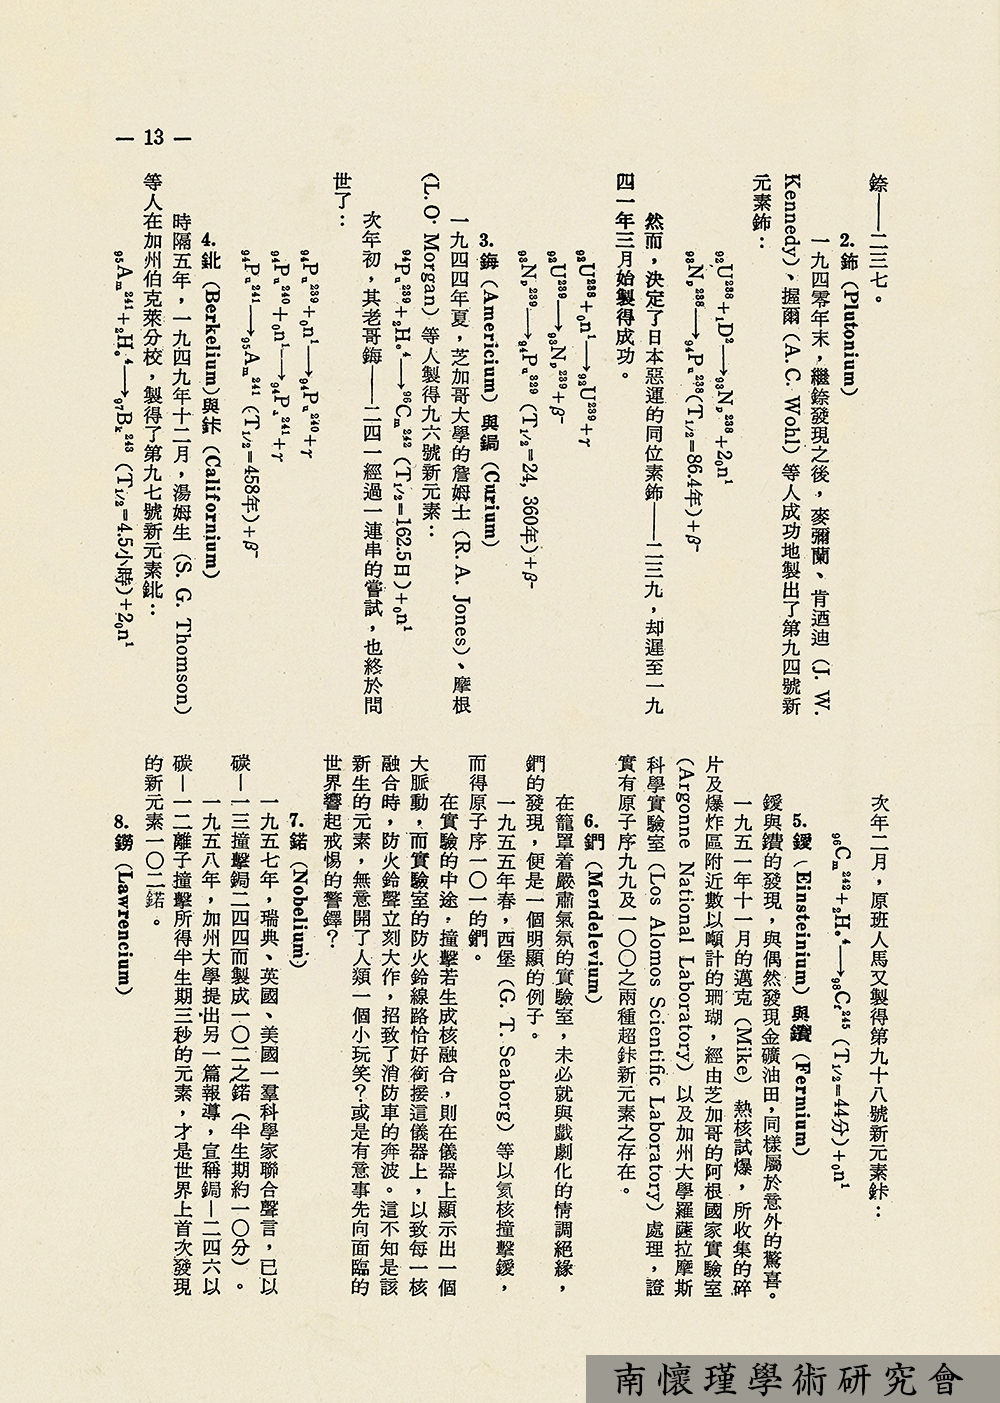 — 13 —
錼——二三七。
2. 鈽 (Plutonium)
一九四零年末，繼錼發現之後，麥彌蘭、肯迺迪 (J. W.
Kennedy)、握爾 (A. C. Wohl) 等人成功地製出了第九四號新
元素鈽：
₉₂U²³⁸+₁D²→₉₃Np²³⁸+2₀n¹
₉₃Np²³⁸→₉₄Pu²³⁸(T₁/₂=86.4年)+β⁻
然而，決定了日本惡運的同位素鈽——二三九，却遲至一九
四一年三月始製得成功。
₉₂U²³⁸+₀n¹→₉₂U²³⁹+γ
₉₂U²³⁹→₉₃Np²³⁹+β⁻
₉₃Np²³⁹→₉₄Pu³²⁹ (T₁/₂=24, 360年)+β⁻
3. 鋂 (Americium) 與鋦 (Curium)
一九四四年夏，芝加哥大學的詹姆士 (R. A. Jones)、摩根
(L. O. Morgan) 等人製得九六號新元素：
₉₄Pu²³⁹+₂He⁴→₉₆Cm²⁴² (T₁/₂=162.5日)+₀n¹
次年初，其老哥鋂——二四一經過一連串的嘗試，也終於問
世了：
₉₄Pu²³⁹+₀n¹→₉₄Pu²⁴⁰+γ
₉₄Pu²⁴⁰+₀n¹→₉₄Pu²⁴¹+γ
₉₄Pu²⁴¹→₉₅Am²⁴¹ (T₁/₂=458年)+β⁻
4. 鉳 (Berkelium)與鉲 (Californium)
時隔五年，一九四九年十二月，湯姆生 (S. G. Thomson)
等人在加州伯克萊分校，製得了第九七號新元素鉳：
₉₅Am²⁴¹+₂He⁴→₉₇Bk²⁴³ (T₁/₂=4.5小時)+2₀n¹
次年二月，原班人馬又製得第九十八號新元素鉲：
₉₆Cm²⁴²+₂He⁴→₉₈Cf²⁴⁵ (T₁/₂=44分)+₀n¹
5. 鑀 (Einsteinium) 與鐨 (Fermium)
鑀與鐨的發現，與偶然發現金礦油田，同樣屬於意外的驚喜。
一九五一年十一月的邁克 (Mike) 熱核試爆，所收集的碎
片及爆炸區附近數以噸計的珊瑚，經由芝加哥的阿根國家實驗室
(Argonne National Laboratory) 以及加州大學羅薩拉摩斯
科學實驗室 (Los Alomos Scientific Laboratory) 處理，證
實有原子序九九及一〇〇之兩種超鉲新元素之存在。
6. 鍆 (Mendelevium)
在籠罩着嚴肅氣氛的實驗室，未必就與戲劇化的情調絕緣，
鍆的發現，便是一個明顯的例子。
一九五五年春，西堡 (G. T. Seaborg) 等以氦核撞擊鑀，
而得原子序一〇一的鍆。
在實驗的中途，撞擊若生成核融合，則在儀器上顯示出一個
大脈動，而實驗室的防火鈴線路恰好銜接這儀器上，以致每一核
融合時，防火鈴聲立刻大作，招致了消防車的奔波。這不知是該
新生的元素，無意開了人類一個小玩笑？或是有意事先向面臨的
世界響起戒惕的警鐸？
7. 鍩 (Nobelium)
一九五七年，瑞典、英國、美國一羣科學家聯合聲言，已以
碳—一三撞擊鋦二四四而製成一〇二之鍩 (半生期約一〇分)。
一九五八年，加州大學提出另一篇報導，宣稱鋦—二四六以
碳—一二離子撞擊所得半生期三秒的元素，才是世界上首次發現
的新元素一〇二鍩。
8. 鐒 (Lawrencium)
南懷瑾學術研究會